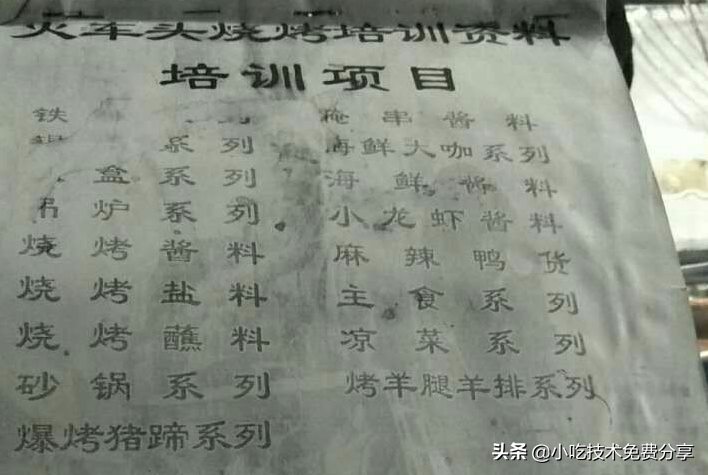 火车头烧烤培训资料
培训项目
铁 系列 腌串酱料
系列 海鲜大咖系列
盒系列 海鲜酱料
吊炉系列 小龙虾酱料
烧烤酱料 麻辣鸭货
烧烤盐料 主食系列
烧烤蘸料 凉菜系列
砂锅系列 烤羊腿羊排系列
爆烤猪蹄系列
头条 @小吃技术免费分享